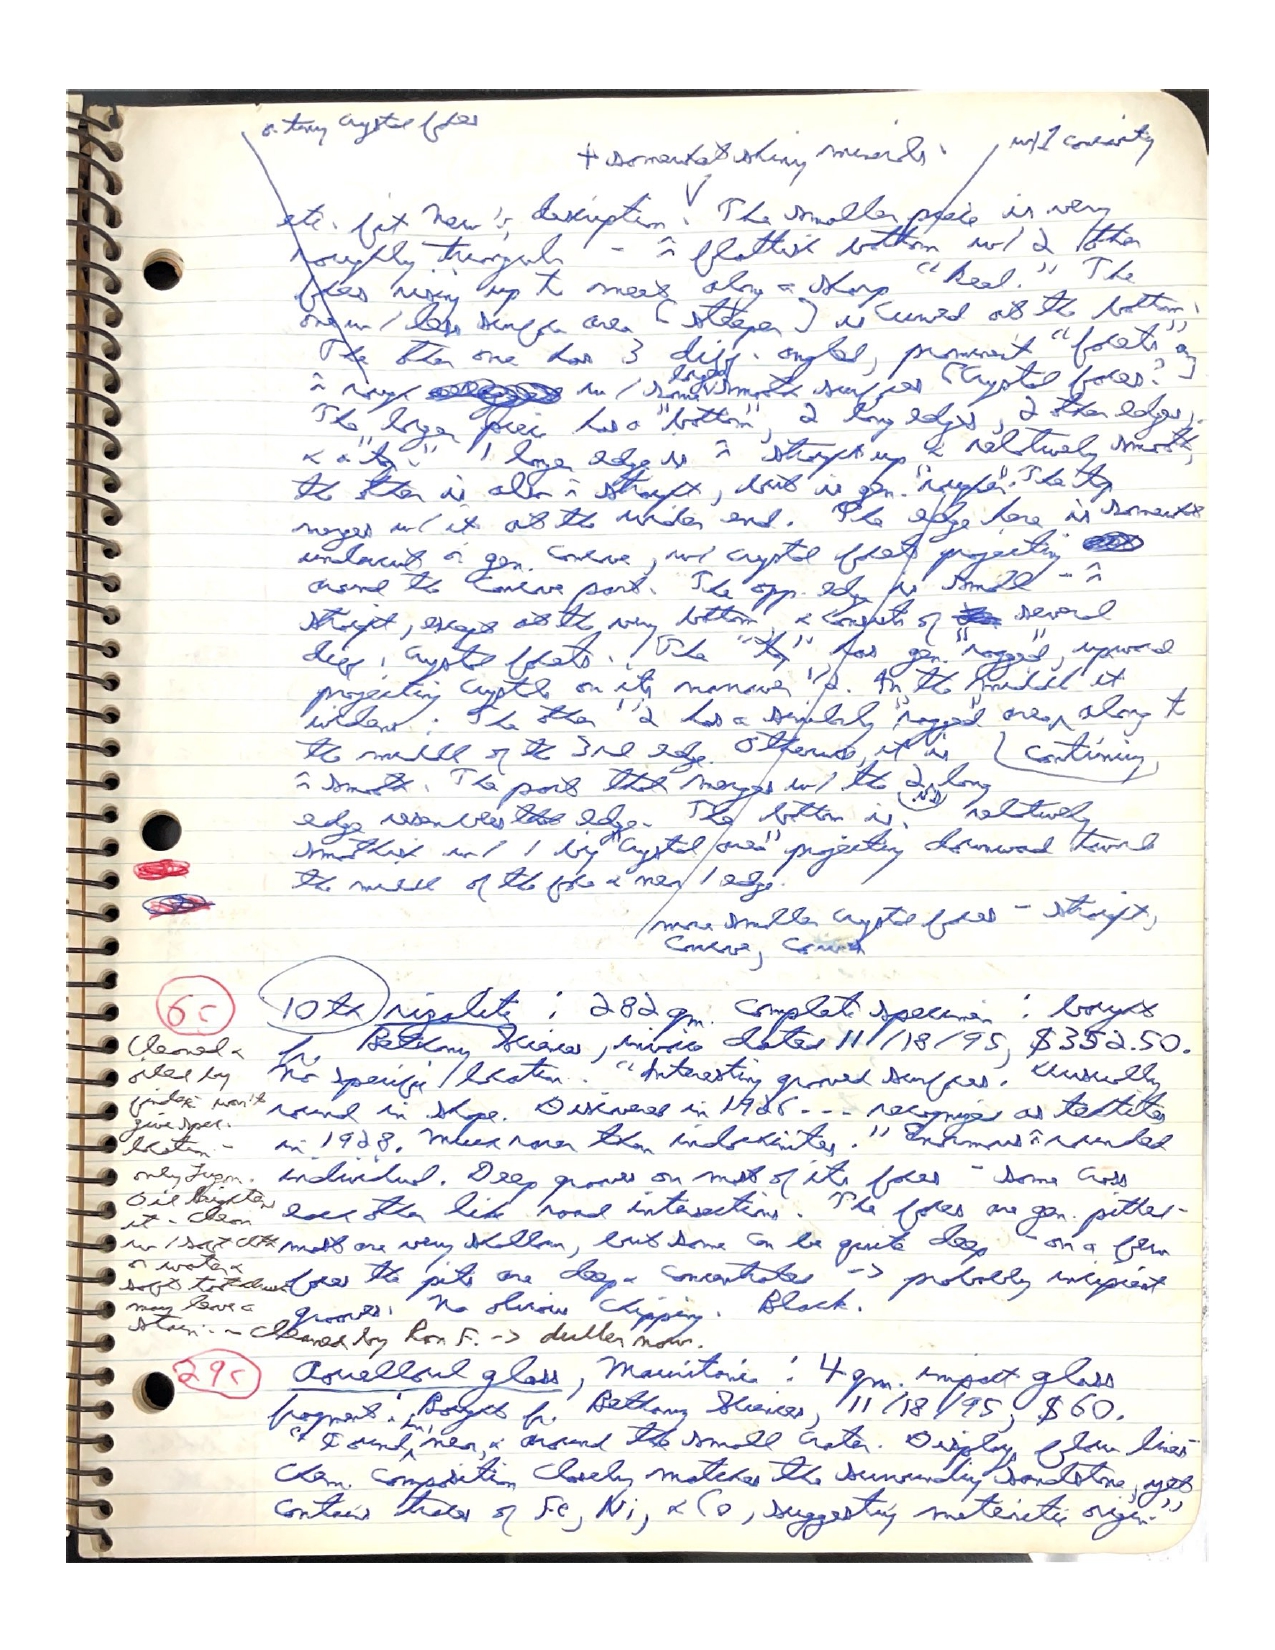 or tiny crystal faces
+ somewhat shiny minerals.
w/ 1 concavity
etc. fit New's description. The smaller piece is very
roughly triangular - ≈ flattish bottom w/ 2 other
faces rising up to meet along a sharp "keel." The
one w/ less surface area [steeper] is curved at the bottom.
The other one has 3 diff. angled, prominent "facets" &
≈ rough w/ some larger smooth surfaces [crystal faces?]
The larger piece has a "bottom", 2 long edges, 2 other edges,
& a "top." 1 longer edge is ≈ straight up & relatively smooth,
the other is also ≈ straight, but is gen. "rougher". The top
merges w/ it at the wider end. The edge here is somewhat
undercut & gen. concave, w/ crystal facets projecting
around the concave part. The opp. edge is small - ≈
straight, except at the very bottom, & consists of several
diff. crystal facets. The "top" has gen. "ragged", upward
projecting crystals on its narrower 1/2. In the middle it
widens. The other 1/2 has a similarly "ragged" area, along to
the middle of the 3rd edge. Otherwise, it is continuing,
≈ smooth. The part that merges w/ the 2nd long
edge resembles the edge. The bottom is relatively
smoothish w/ 1 big "crystal area" projecting downward toward
the middle of the face & near 1 edge.
more smaller crystal faces - straight,
concave, convex
6c
10th rizalite: 282 gm. complete specimen: bought
fr. Bethany Sciences, invoice dated 11/18/95, $352.50.
No specific location. "Interesting grooved surfaces. Unusually
round in shape. Discovered in 1926 --- recognized as tektites
in 1928. Much rarer than indochinites." Enormous ≈ rounded
individual. Deep grooves on most of its faces - some cross
each other like road intersections. The faces are gen. pitted -
most are very shallow, but some can be quite deep - on a few
faces the pits are deep & concentrated -> probably incipient
grooves. No obvious chipping. Black.
Cleaned &
oiled by
finder won't
give spec.
location -
only Luzon.
Oil brightens
it - clean
w/ soft cloth
in water &
soft toothbrush
may leave a
stain. - cleaned by Ron F. -> duller now.
29c
Aouelloul glass, Mauritania: 4 gm. impact glass
fragment: Bought fr. Bethany Sciences, 11/18/95, $60.
"Found in, near, & around the small crater. Display flow lines
Chem. composition closely matches the surrounding sandstone, yet
contains traces of Fe, Ni, & Co, suggesting meteoritic origin."